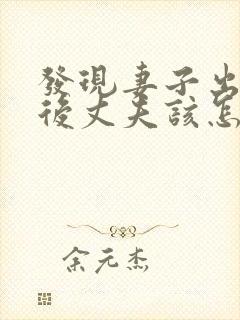 發現妻子出
後丈夫該怎
余元杰